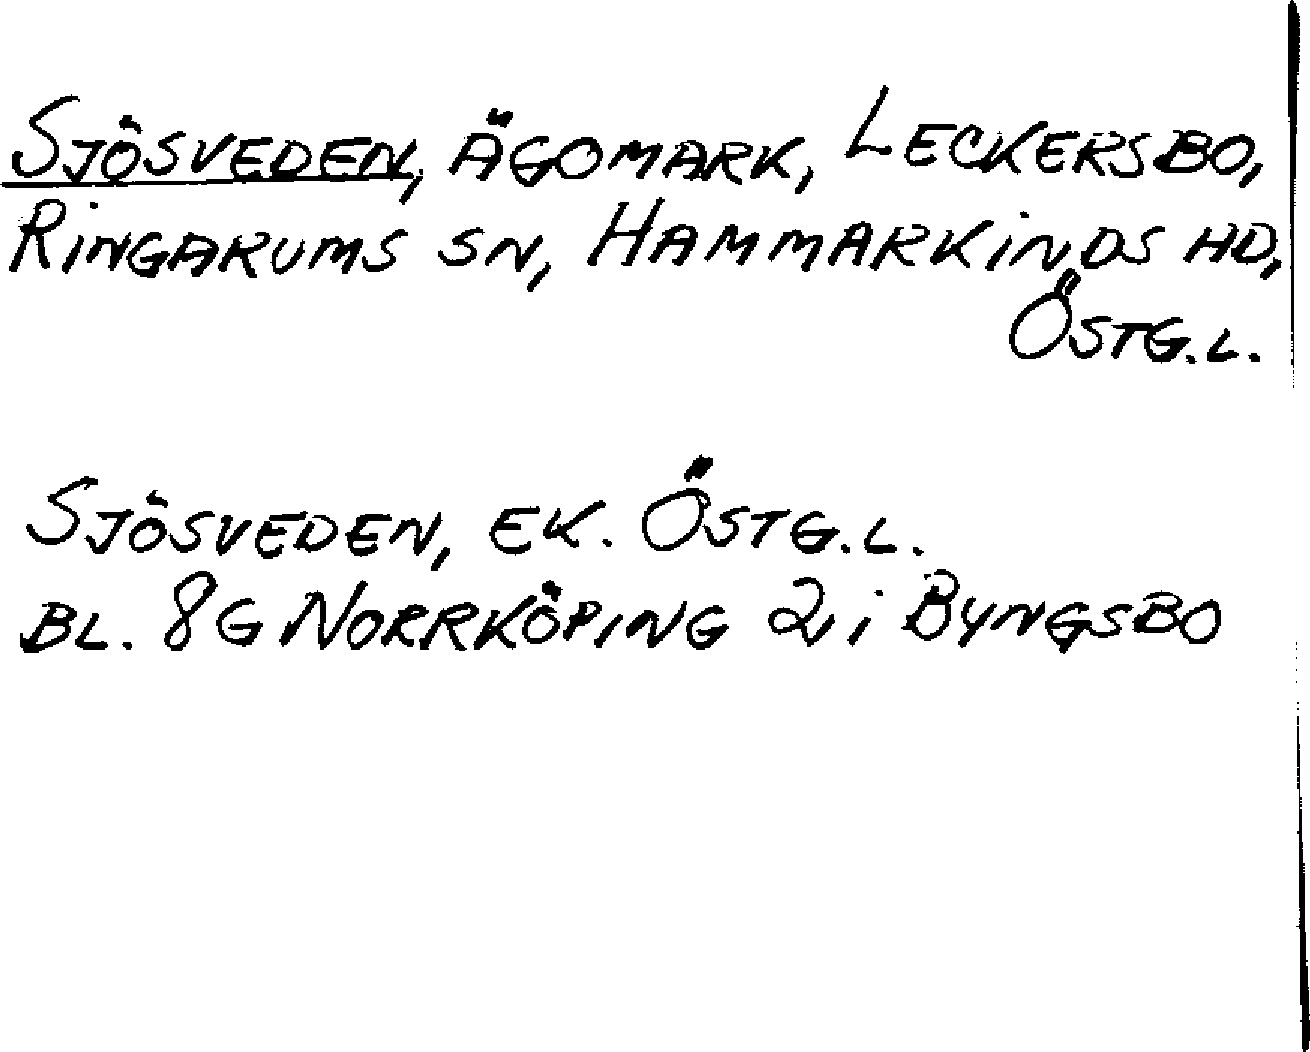 Sjösveden, ägomark, Leckersbo,
Ringarums sn, Hammarkinds hd,
Östg.l.
Sjösveden, ek. Östg.l.
bl. 8G Norrköping 2i Byngsbo